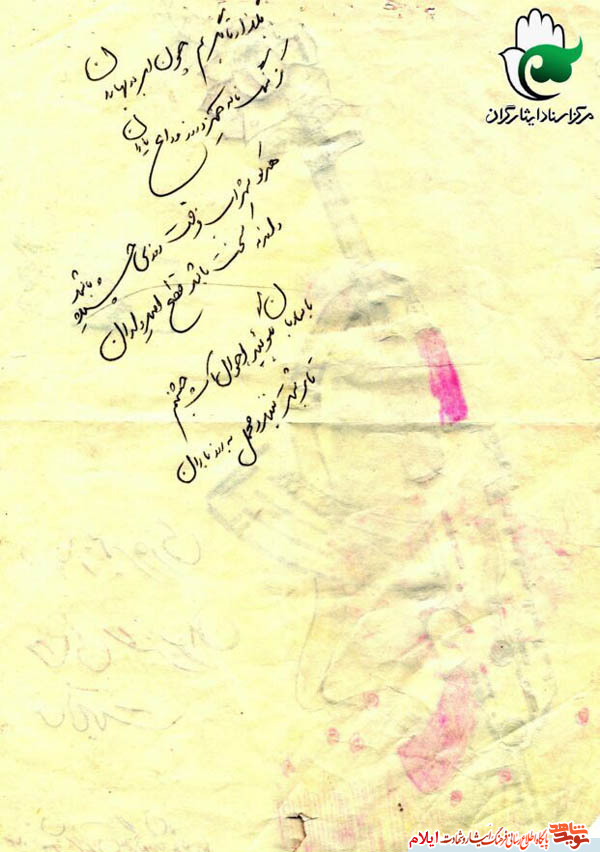 مرکز اسناد ایثارگران
بگذار تا بگریم چون ابر در بهاران
کز سنگ ناله خیزد روز وداع یاران
هر کو شراب فرقت روزی چشیده باشد
داند که سخت باشد قطع امیدواران
با ساربان بگوئید احوال آب چشمم
تا بر شتر نبندد محمل به روز باران
نوید شاهد پایگاه اطلاع رسانی فرهنگ ایثار و شهادت ایلام